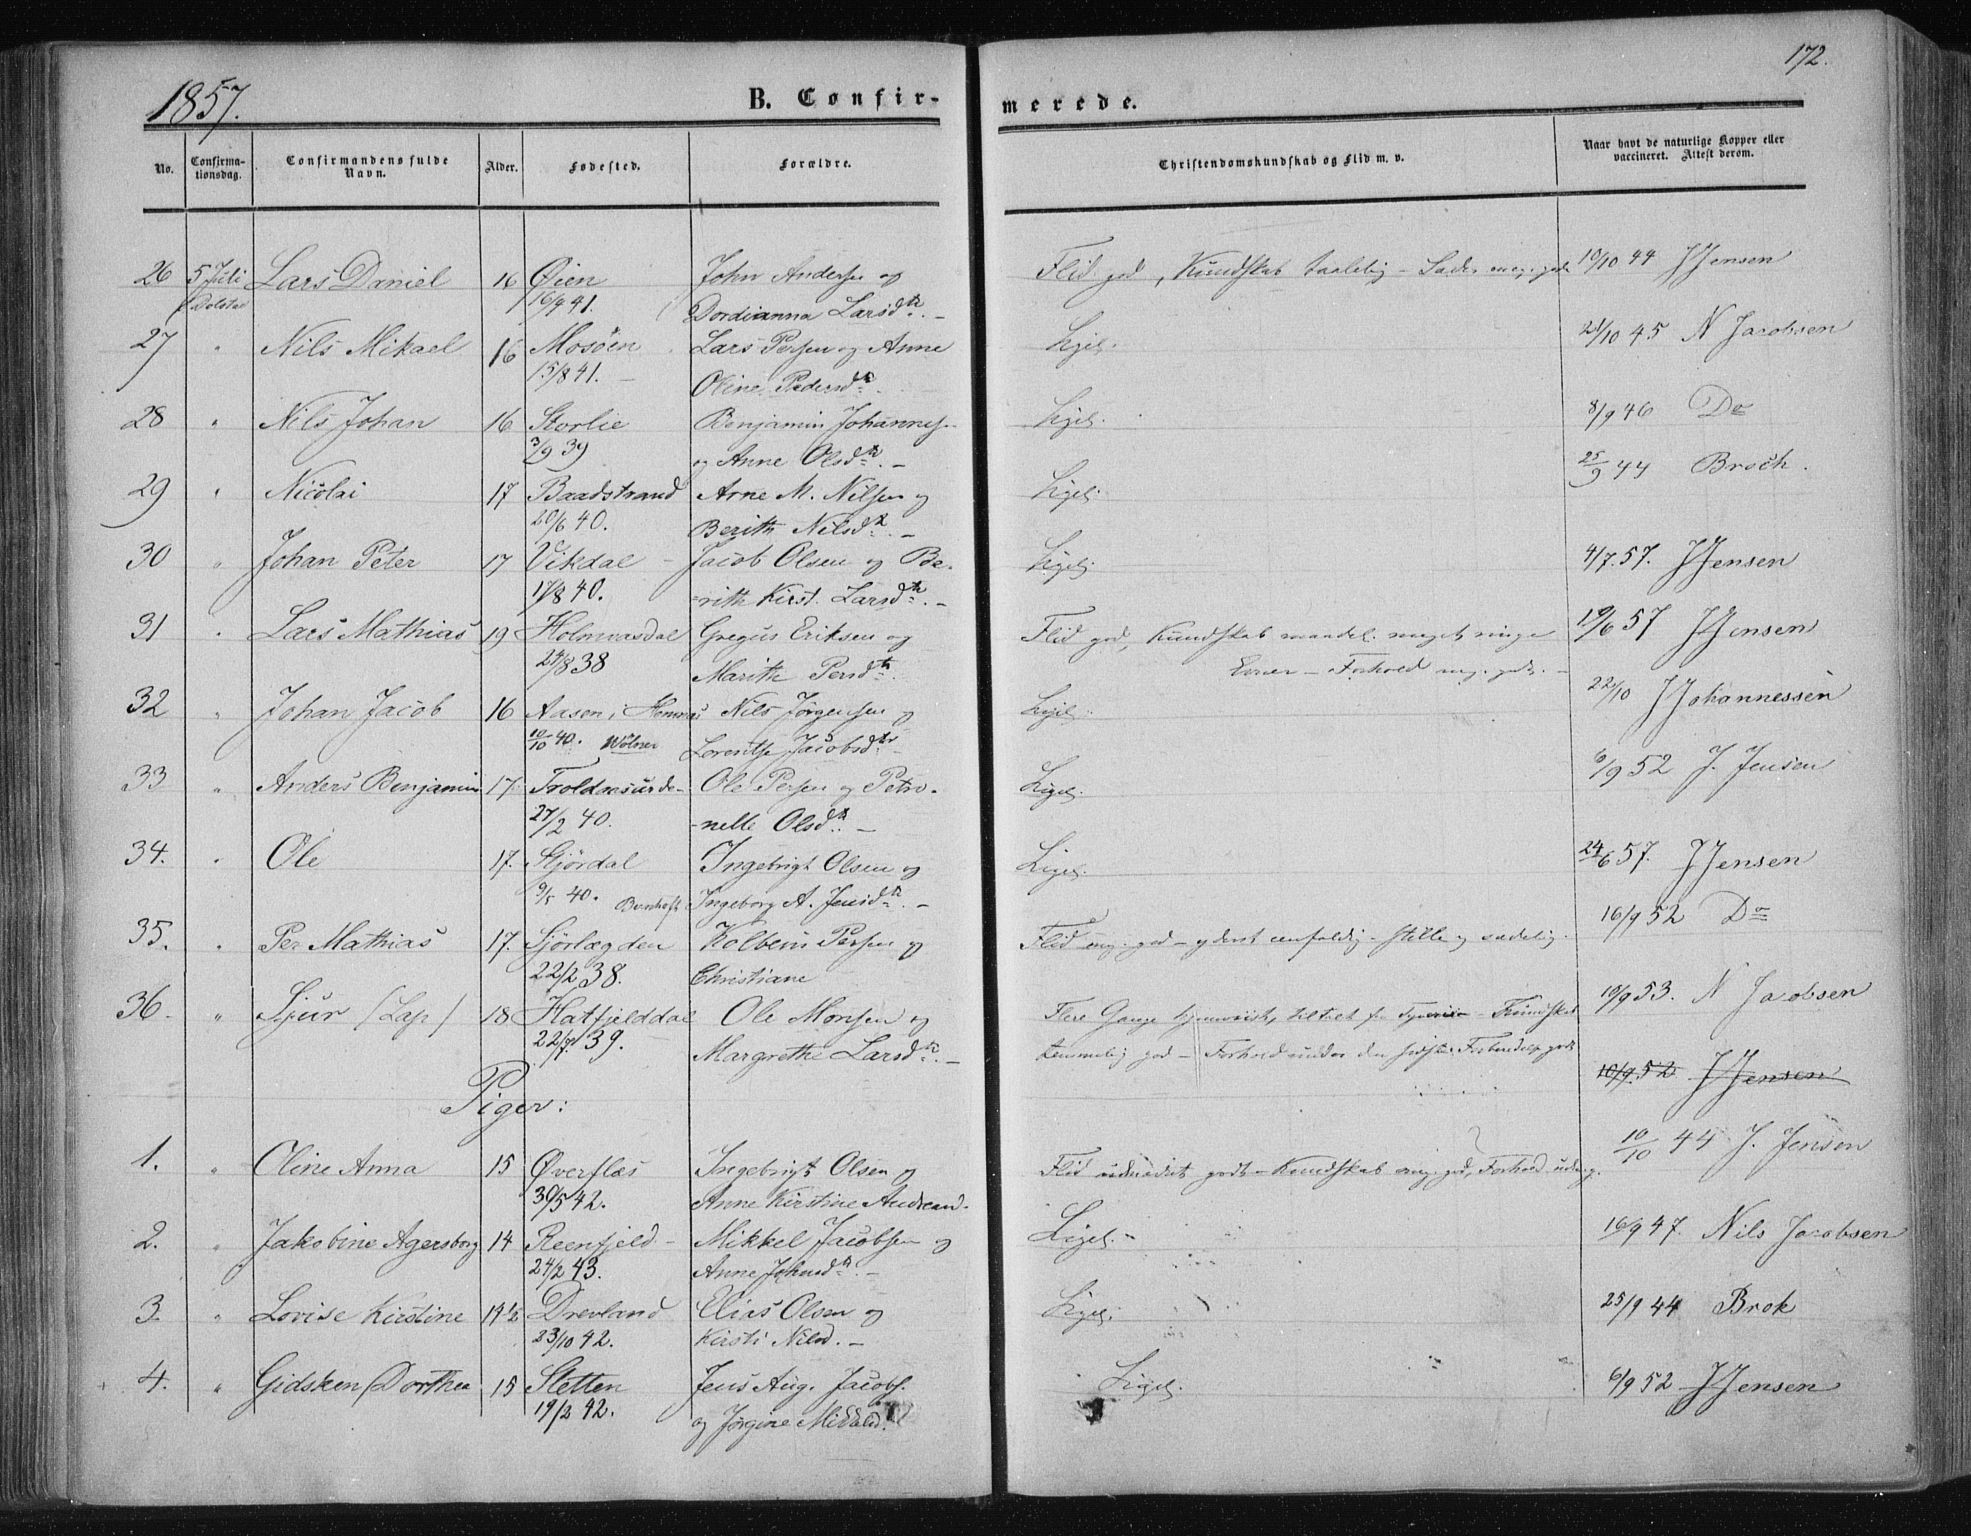 172.
1857.
B. Confir-
merede.
No.
Confirma-
tionsdag.
Confirmandens fulde
Navn.
Alder.
Fødested.
Forældre.
Christendomskundskab og Flid m. v.
Naar havt de naturlige Kopper eller
vaccineret. Attest derom.
26 5 Juli Lars Daniel 16 Øien John Andersen og Flid god, Kundskab taalelig - 10/10 44 J Jensen
Dolstad 16/9 41. Dordianna Larsdtr. -
27 " Nils Mikael 16 Mosøen Lars Persen og Anne Ligel. 21/10 45 N Jacobsen
15/8 41. - Oline Pedersdr.
28 " Nils Johan 16 Storlie Benjamin Johannes. Ligel. 8/9 46 Do
3/9 39 og Anne Olsdtr. -
29 " Nicolai 17 Baadstrand Arne M. Nilsen og Ligel. 25/9 44 Broch.
20/6 40. Berith Nilsdtr. -
30 " Johan Peter 17 Vikdal - Jacob Olsen og Be- Ligel. 4/7. 57. J Jensen
17/8 40. -rith Kirst. Larsdtr. -
31 " Lars Mathias 19 Holmvasdal Gregus Eriksen og Flid god, Kundskab maadel. meget ringe 19/6 57 J Jensen
24/8 38 Marith Persdtr. Evner - Forhold meg. godt. -
32 " Johan Jacob 16 Aasen i Hemnæs Nils Jørgensen og Ligel. 22/10 J Johannessen
10/10 40. Lorentse Jacobsdtr -
33 " Anders Benjamin 17. Ole Persen og Petro- Ligel. 6/9 52 J. Jensen
27/2 40. -nelle Olsdtr. -
34. " Ole 17. Stjørdal Ingebrigt Olsen og Ligel. 24/6 57. J Jensen
40. Ingeborg A. Jensdtr. -
35. " Per Mathias 17. Sjørlægden Kolbein Persen og Flid meg. god - yderst eenfoldig - stille og sædelig. 16/9 52 Do
22/2 38. Christiane
36. " Sjur (Lap) 18 Hatfjelddal Ole Monsen og Flere Gange - Kundskab 10/9 53. N Jacobsen
22/7 39. Margrethe Larsdtr. - temmelig god - Forhold under den sidste Forberedelse godt 10/9. 52 J Jensen
Piger:
1. " Oline Anna 15 Øverflæs Ingebrigt Olsen og Flid godt - Kundskab meg. god, Forhold 10/10 44 J. Jensen
30/5 42. Anne Kirstine Andreasd.
2. " Jakobine Agersborg 14 Reenfjeld - Mikkel Jacobsen og Ligel. - 16/9 47. Nils Jacobsen
24/2 43. Anne Johnsdtr. -
3. " Lovise Kirstine 14½ Drevland Elias Olsen og Ligel. 25/9 44 Brok
23/10 42. Kirsti Nilsd. -
4. " Gidsken Dorthea 15 Sletten Jens Aug. Jacobs. Ligel. 6/9 52 J Jensen
19/2 42. og Jørgine Mikkelsd.